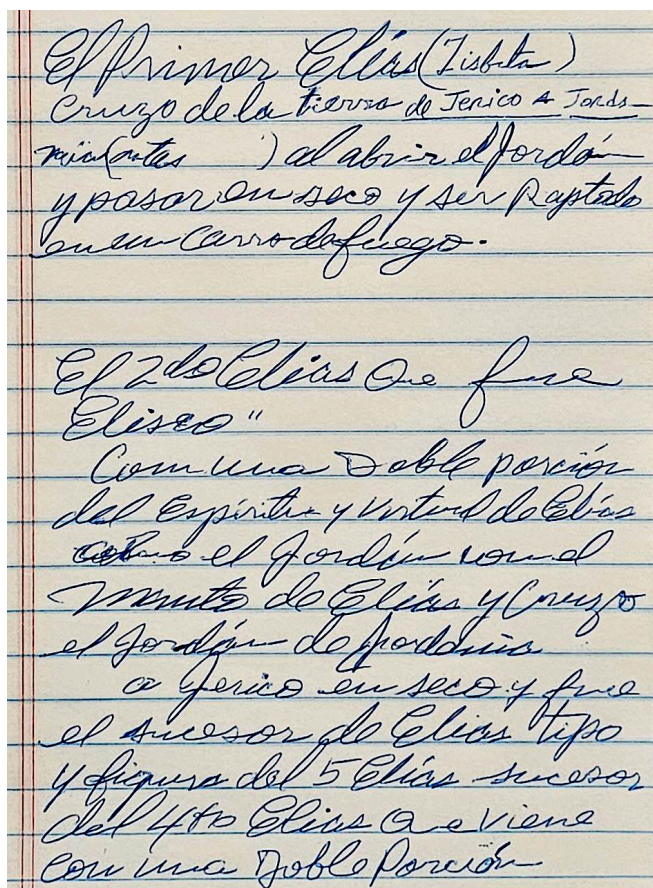 El Primer Elías (Tisbita)
Cruzo de la tierra de Jerico A Jorda-
nia (antes      ) al abrir el Jordán
y pasar en seco y ser Raptado
en un Carro de fuego.
El 2do Elias Que fue
Eliseo"
Com una Doble porción
del Espíritu y Virtud de Elías
el Jordán con el
Manto de Elías y Cruzo
el Jordán de Jordania
a Jerico en seco y fue
el sucesor de Elias tipo
y figura del 5 Elías sucesor
del 4to Elias Que viene
con una Doble Porción